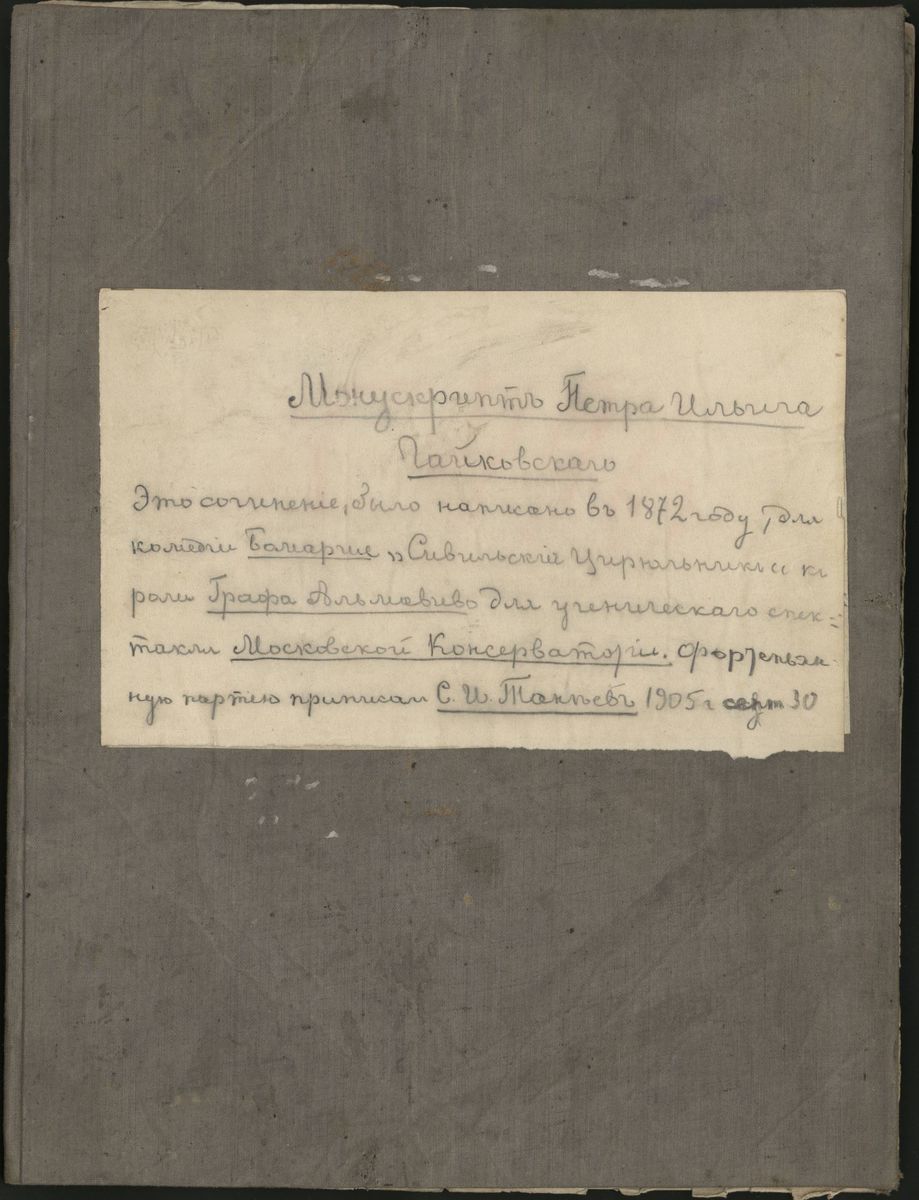 Монускриптъ Петра Ильича
Чайковскаго
Это сочиненіе, было написано въ 1872 году, для
комедіи Бомарше „Сивильскій Цирюльникъ“ къ
роли Графа Альмовиво для ученическаго спек=
такля Московской Консерваторіи. Фортепьян-
ную партею приписал С. И. Танѣевъ 1905 г сент 30